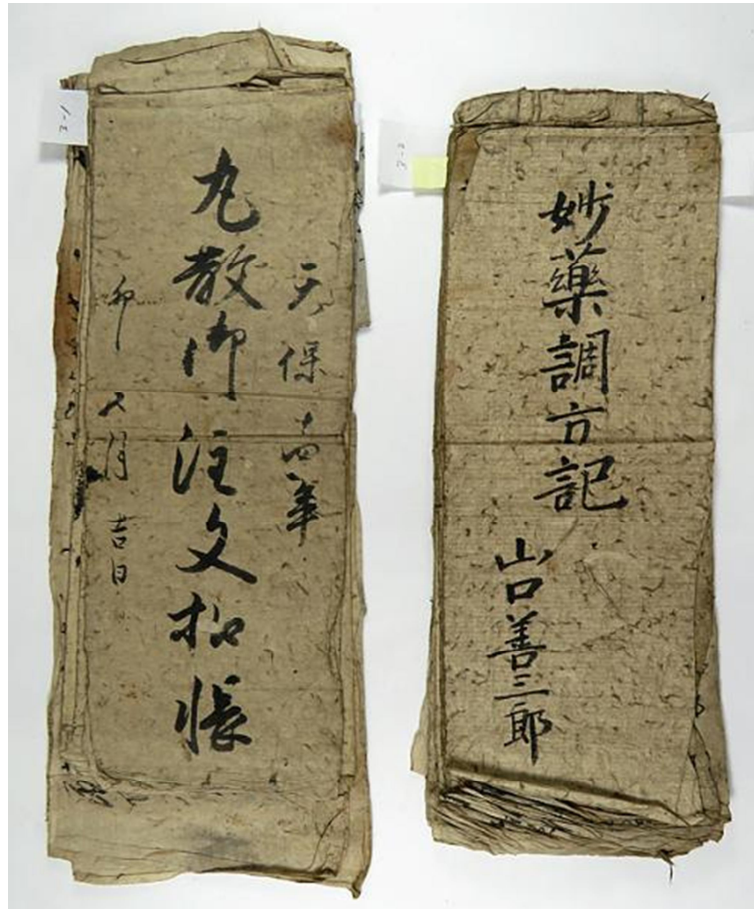 天保十四年
丸散御注文扣帳
卯 吉日
妙藥調方記
山口善三郎